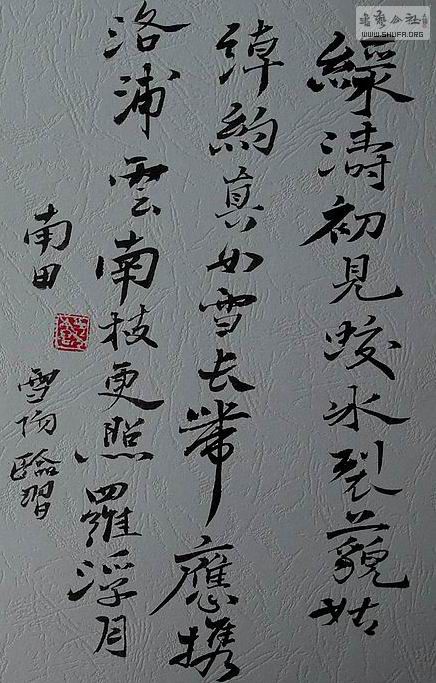 書藝公社
WWW.SHUFA.ORG
綠濤初見蛟冰裂藐姑
淖約真如雪長帶應攜
洛浦雲南枝更照羅浮月
南田
雪陽臨習